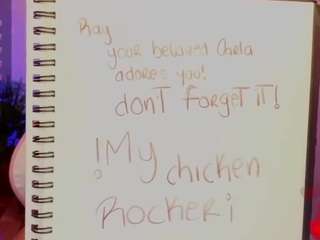 Ray
your beloved Chela
adores you!
don't forget it!
¡My chicken
Rocker¡